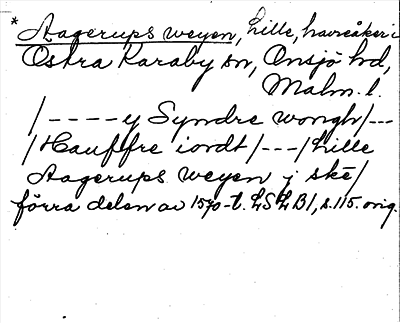 * Aagerups weyen, Lille, havreåker i
Östra Karaby sn, Onsjö hd,
Malm. l.
/ - - - - y Syndre wongh/ - - -
/Hauffre iordt/ - - - /Lille
Aagerups weyen j ske/
förra delen av 1570-t. LSLB1, s. 115. orig.